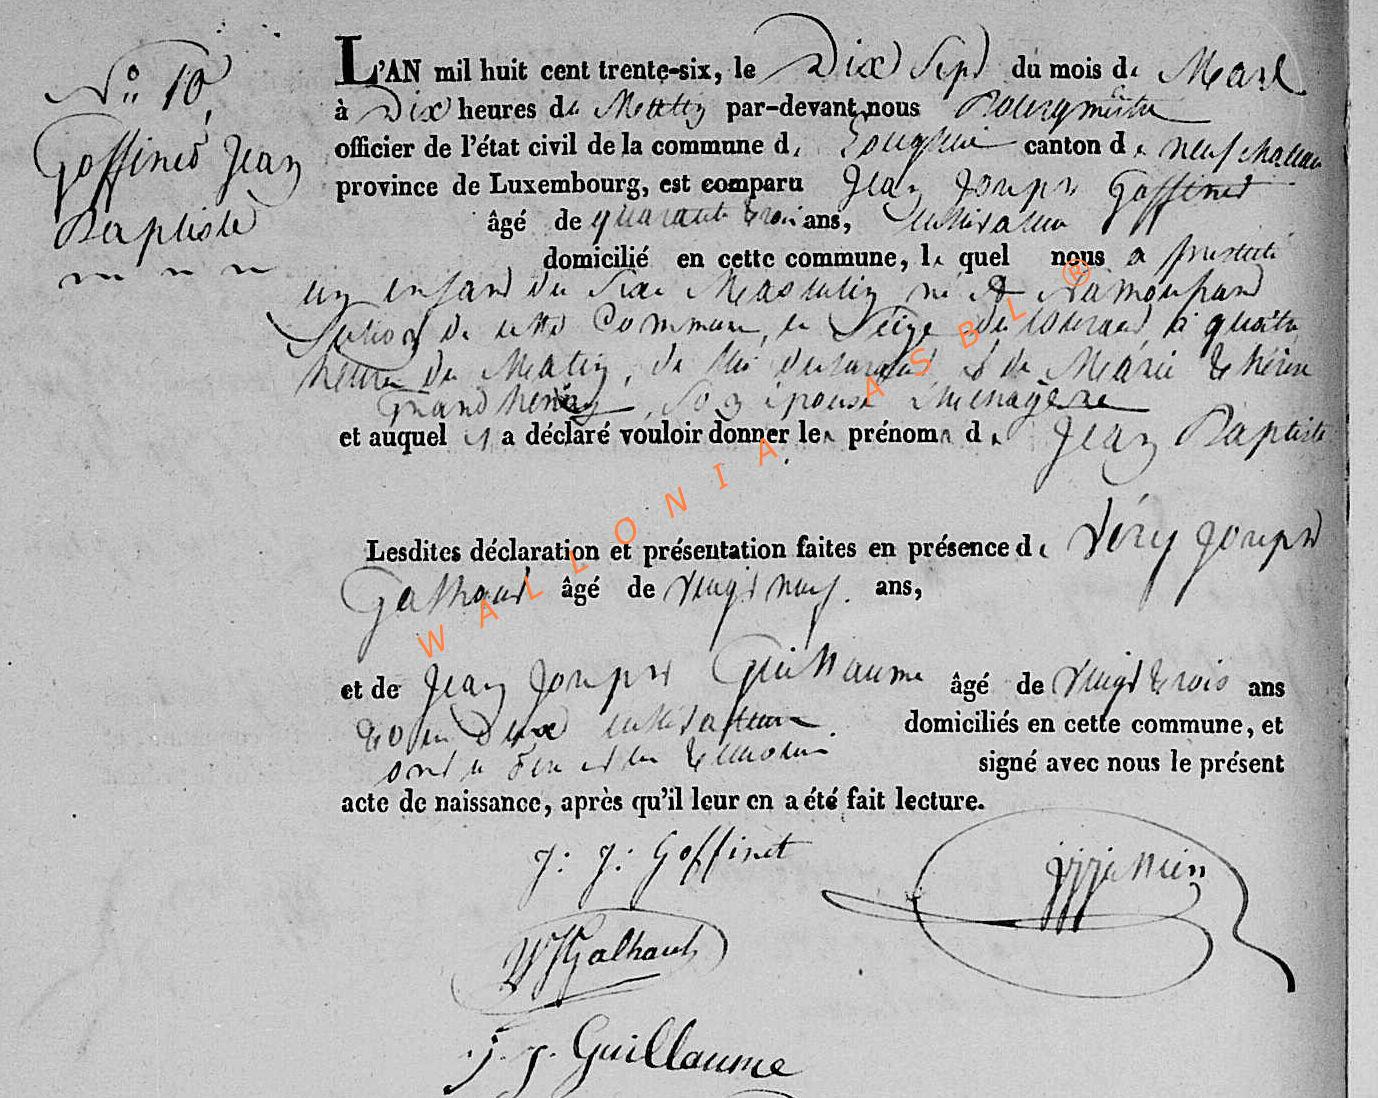 N° 10
Goffinet Jean
Baptiste
L'AN mil huit cent trente-six, le Dix Sept du mois de Mars
à Dix heures du Mattin par-devant nous Bourgmestre
officier de l'état civil de la commune de canton de neufchateau
province de Luxembourg, est comparu Jean Joseph Goffinet
âgé de quarante trois ans, cultivateur
domicilié en cette commune, le quel nous a presenté
un enfant du Sexe Masculin né à Namoussart
Section de cette Commune, le Seize du courant à quatre
heures du Matin, de lui declarant et de Marie thérèse
Grand henry, son épouse menagère
et auquel il a déclaré vouloir donner les prénoms de Jean Baptiste
Lesdites déclaration et présentation faites en présence de Véry Joseph
Galhaut âgé de vingt neuf ans,
et de Jean Joseph Guillaume âgé de vingt trois ans
tous deux cultivateurs domiciliés en cette commune, et
ont le et les temoins signé avec nous le présent
acte de naissance, après qu'il leur en a été fait lecture.
J: J: Goffinet
VJGalhaut
J. J. Guillaume
WALLONIA ASBL ®